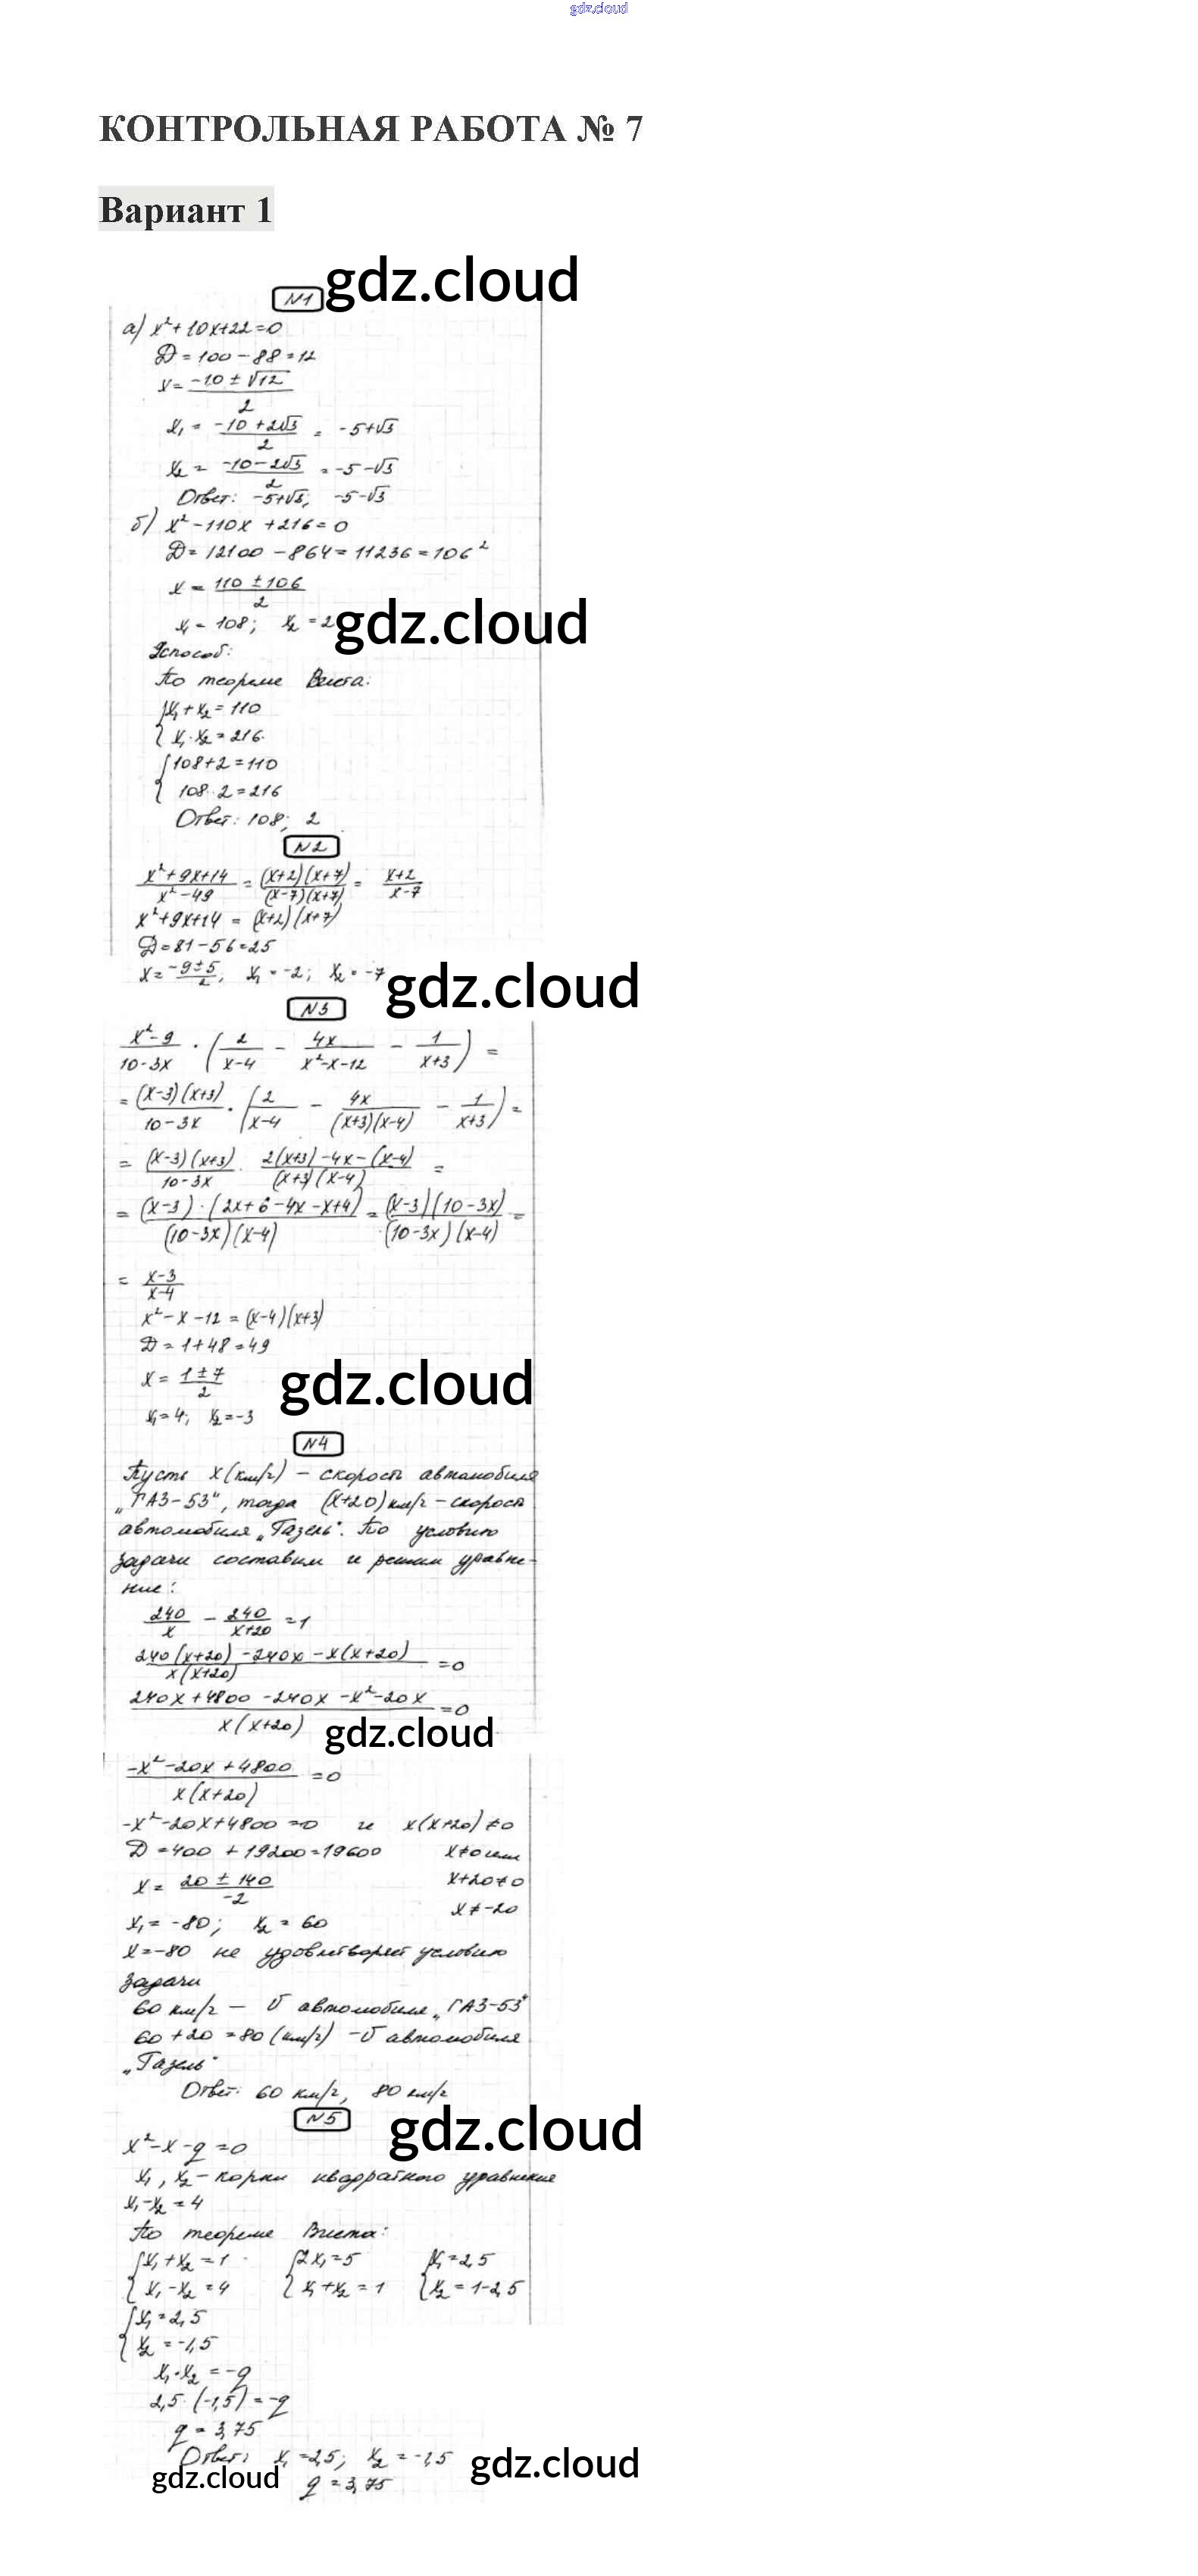 gdz.cloud
КОНТРОЛЬНАЯ РАБОТА № 7
Вариант 1
gdz.cloud
N1
а) x²+10x+22=0
D=100-88=12
x=(-10±√12)/2
x₁ = (-10+2√3)/2 = -5+√3
x₂ = (-10-2√3)/2 = -5-√3
Ответ: -5+√3; -5-√3
б) x²-110x+216=0
D=12100-864=11236=106²
x = (110±106)/2
x₁ = 108; x₂ = 2
gdz.cloud
способ:
По теореме Виета:
{x₁+x₂=110
{x₁·x₂=216
{108+2=110
{108·2=216
Ответ: 108; 2
N2
(x²+9x+14)/(x²-49) = ((x+2)(x+7))/((x-7)(x+7)) = (x+2)/(x-7)
x²+9x+14 = (x+2)(x+7)
D=81-56=25
x=(-9±5)/2, x₁=-2; x₂=-7
gdz.cloud
N3
(x²-9)/(10-3x) · (2/(x-4) - 4x/(x²-x-12) - 1/(x+3)) =
= ((x-3)(x+3))/(10-3x) · (2/(x-4) - 4x/((x+3)(x-4)) - 1/(x+3)) =
= ((x-3)(x+3))/(10-3x) · (2(x+3)-4x-(x-4))/((x+3)(x-4)) =
= ((x-3)·(2x+6-4x-x+4))/((10-3x)(x-4)) = ((x-3)(10-3x))/((10-3x)(x-4)) =
= (x-3)/(x-4)
x²-x-12=(x-4)(x+3)
D=1+48=49
x=(1±7)/2
gdz.cloud
x₁=4; x₂=-3
N4
Пусть x(км/ч) – скорость автомобиля
„ГАЗ-53", тогда (x+20)км/ч – скорость
автомобиля „Газель". По условию
задачи составим и решим уравне-
ние:
240/x - 240/(x+20) = 1
(240(x+20)-240x-x(x+20))/(x(x+20)) = 0
(240x+4800-240x-x²-20x)/(x(x+20)) = 0
gdz.cloud
(-x²-20x+4800)/(x(x+20)) = 0
-x²-20x+4800=0 и x(x+20)≠0
D=400+19200=19600 x≠0 или
x=(20±140)/-2 x+20≠0
x₁=-80; x₂=60 x≠-20
x=-80 не удовлетворяет условию
задачи
60 км/ч – υ автомобиля „ГАЗ-53"
60+20=80(км/ч) – υ автомобиля
„Газель"
Ответ: 60 км/ч, 80 км/ч
N5
gdz.cloud
x²-x-q=0
x₁, x₂ – корни квадратного уравнение
x₁-x₂=4
По теореме Виета:
{x₁+x₂=1 {2x₁=5 {x₁=2,5
{x₁-x₂=4 {x₁+x₂=1 {x₂=1-2,5
{x₁=2,5
{x₂=-1,5
x₁·x₂=-q
2,5·(-1,5)=-q
q=3,75
Ответ: x₁=2,5; x₂=-1,5
gdz.cloud
gdz.cloud
q=3,75